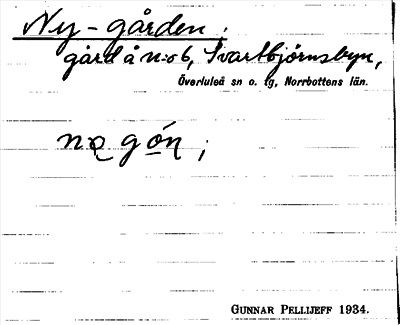 Ny-gården;
gård å n:o 6, Svartbjörnsbyn,
Överluleå sn o. tg, Norrbottens län.
GUNNAR PELLIJEFF 1934.